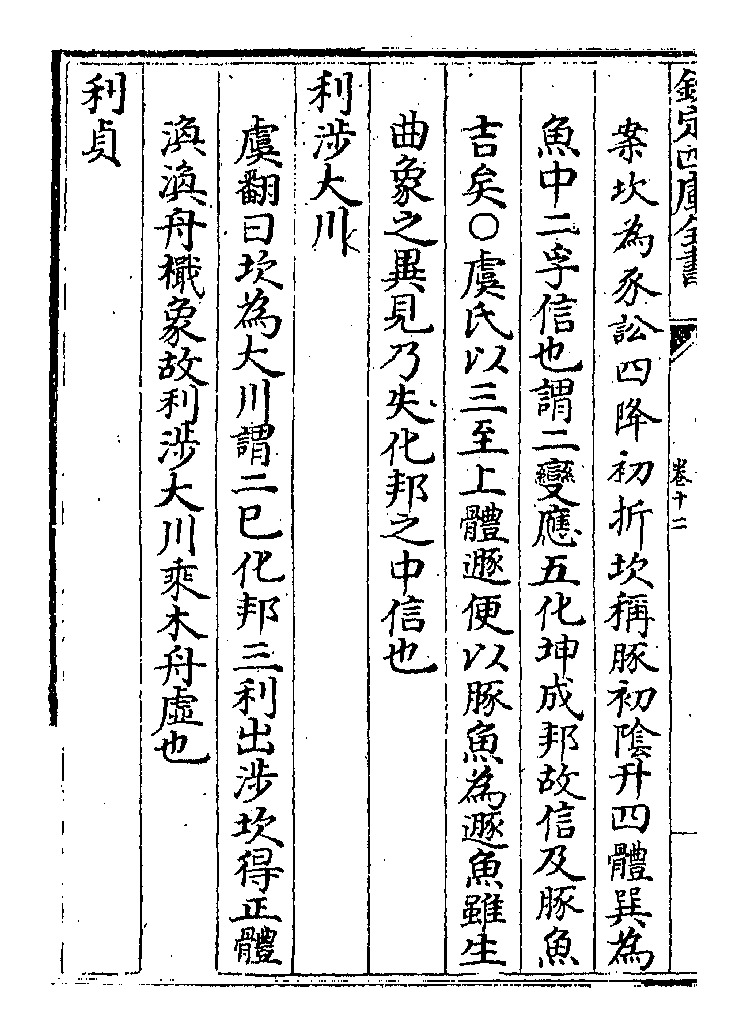 欽定四庫全書
卷十二
案坎為豕訟四降初折坎稱豚初陰升四體巽為
魚中二孚信也謂二變應五化坤成邦故信及豚魚
吉矣○虞氏以三至上體遯便以豚魚為遯魚雖生
曲象之異見乃失化邦之中信也
利涉大川
虞翻曰坎為大川謂二已化邦三利出涉坎得正體
渙渙舟檝象故利涉大川乘木舟虛也
利貞